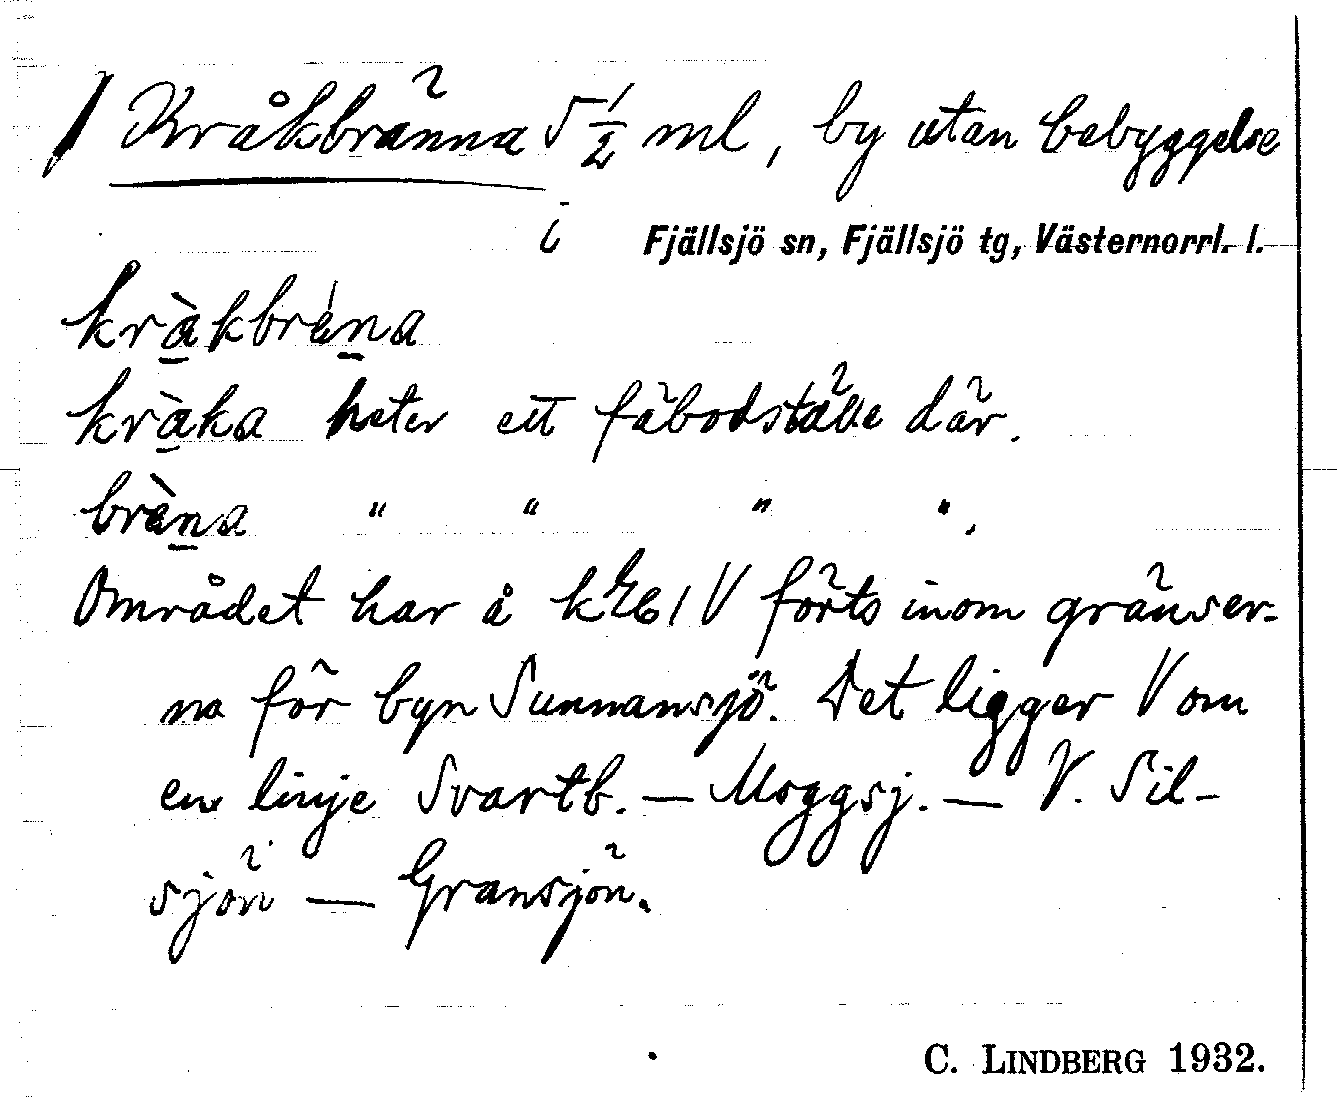 Kråkbränna 5 1/2 ml, by utan bebyggelse
i Fjällsjö sn, Fjällsjö tg, Västernorrl. l.
kràkbréna
kràka heter ett fäbodställe där.
brèna " " " ".
Området har å förts inom gränser-
na för byn Sunnansjö. Det ligger V om
en linje Svartb. — Moggsj. — V. Sil-
sjön — Gransjön.
C. LINDBERG 1932.